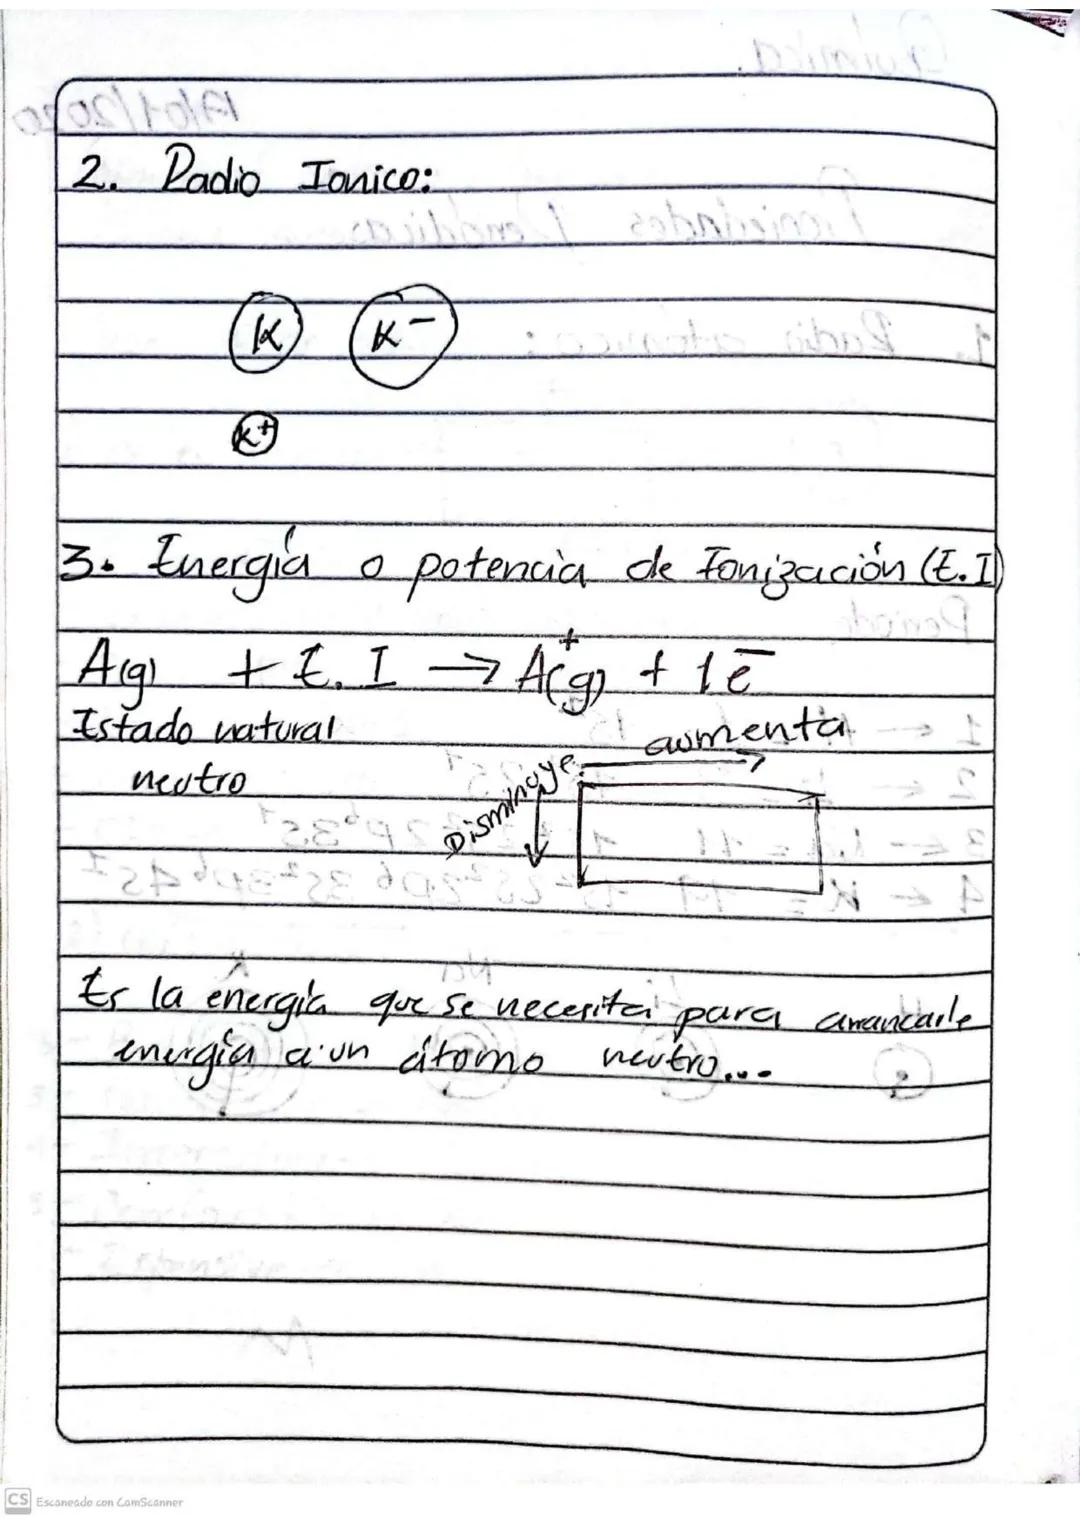 2. Radio Ionico:
K K⁻
K⁺
3. Energía o potencia de Ionización (E.I)
A(g) + E.I → A⁺(g) + 1e⁻
Estado natural
neutro
aumenta
Disminuye
Es la energía que se necesita para arrancarle
energía a un átomo neutro...
CS Escaneado con CamScanner